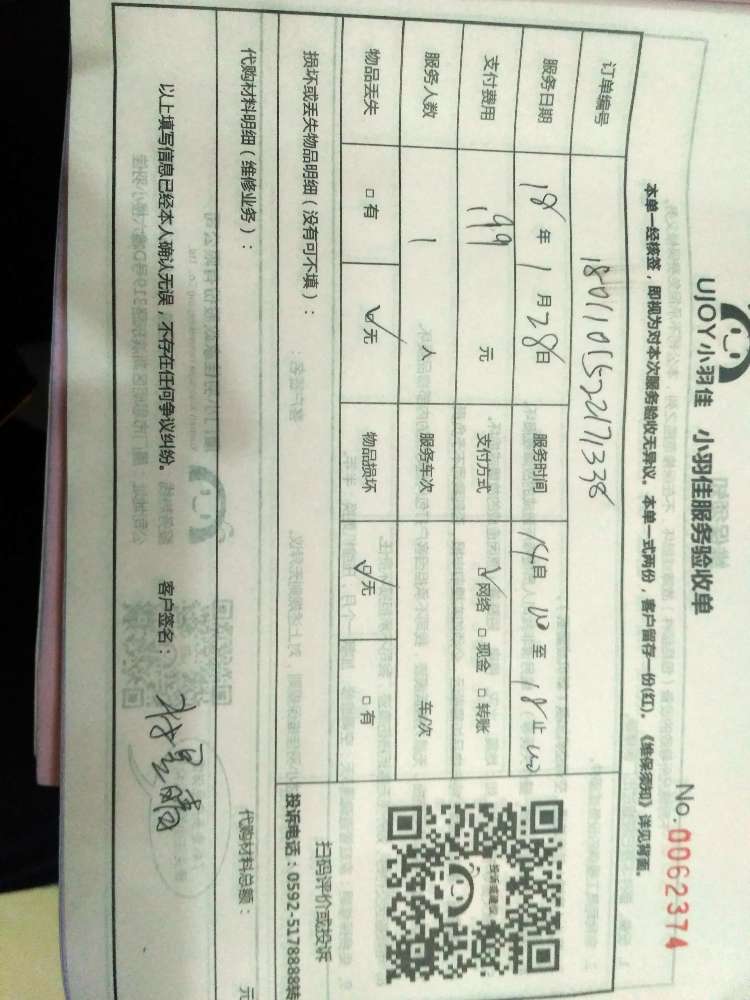 UJOY小羽佳 小羽佳服务验收单
No. 0062374
本单一经核签，即视为对本次服务验收无异议。本单一式两份，客户留存一份(红)。《维保须知》详见背面。
订单编号 180110152217138
服务日期 18年1月28日 服务时间 14自00至18止00
支付费用 199 元 支付方式 ☑网络 □现金 □转账
服务人数 1 人 服务车次 车/次
物品丢失 □有 ☑无 物品损坏 ☑无 □有
损坏或丢失物品明细（没有可不填）：
扫码评价或投诉
投诉电话：0592-5178888转
代购材料明细（维修业务）： 代购材料总额： 元
以上填写信息已经本人确认无误，不存在任何争议纠纷。 客户签名：